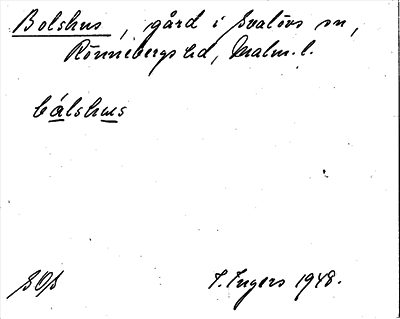 Bolshus, gård i Svalövs sn,
Rönnebergs hd, Malm. l.
bálshus
SOB
I. Ingers 1948.